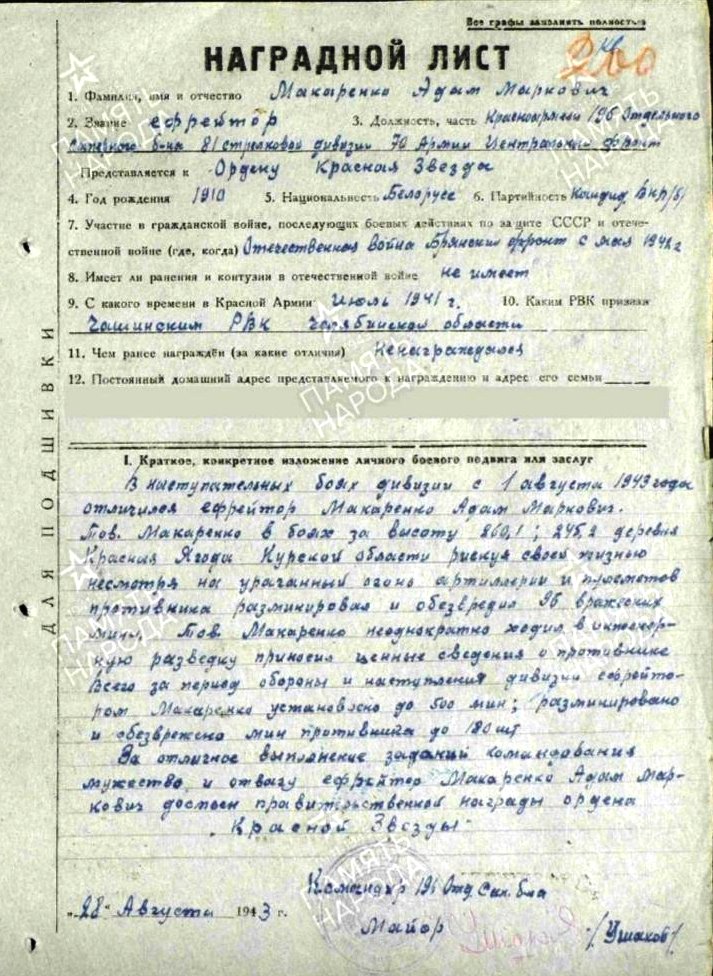 Все графы заполнять полностью
НАГРАДНОЙ ЛИСТ
1. Фамилия, имя и отчество Макаренко Адам Маркович
2. Звание ефрейтор 3. Должность, часть Красноармеец 196 Отдельного
Саперного б-на 81 стрелковой дивизии 70 Армии Центральный фронт
Представляется к Ордену Красная Звезда
4. Год рождения 1910 5. Национальность Белорусс 6. Партийность Кандид. ВКП/б/
7. Участие в гражданской войне, последующих боевых действиях по защите СССР и отече-
ственной войне (где, когда) Отечественная война Брянский фронт с мая 1942 г
8. Имеет ли ранения и контузии в отечественной войне не имеет
9. С какого времени в Красной Армии Июль 1941 г. 10. Каким РВК призван
Чашинским РВК Челябинской области
11. Чем ранее награждён (за какие отличия) ненаграждался
12. Постоянный домашний адрес представляемого к награждению и адрес его семьи
I. Краткое, конкретное изложение личного боевого подвига или заслуг
В наступательных боях дивизии с 1 августа 1943 года
отличился ефрейтор Макаренко Адам Маркович.
Тов. Макаренко в боях за высоту 260,1; 245,2 деревня
Красная Ягода Курской области рискуя своей жизнью
несмотря на ураганный огонь артиллерии и пулеметов
противника разминировал и обезвредил 96 вражеских
мины. Тов. Макаренко неоднократно ходил в инженер-
ную разведку приносил ценные сведения о противнике
Всего за период обороны и наступления дивизии ефрейто-
ром Макаренко установлено до 500 мин; разминировано
и обезврежено мин противника до 180 шт
За отличное выполнение заданий командования
мужество и отвагу ефрейтор Макаренко Адам Мар-
кович достоен правительственной награды ордена
Красной Звезды.
Командир 196 Отд. Сап. б-на
"28" Августа 1943 г.
Майор /Ушаков/
ДЛЯ ПОДШИВКИ
ПАМЯТЬ НАРОДА